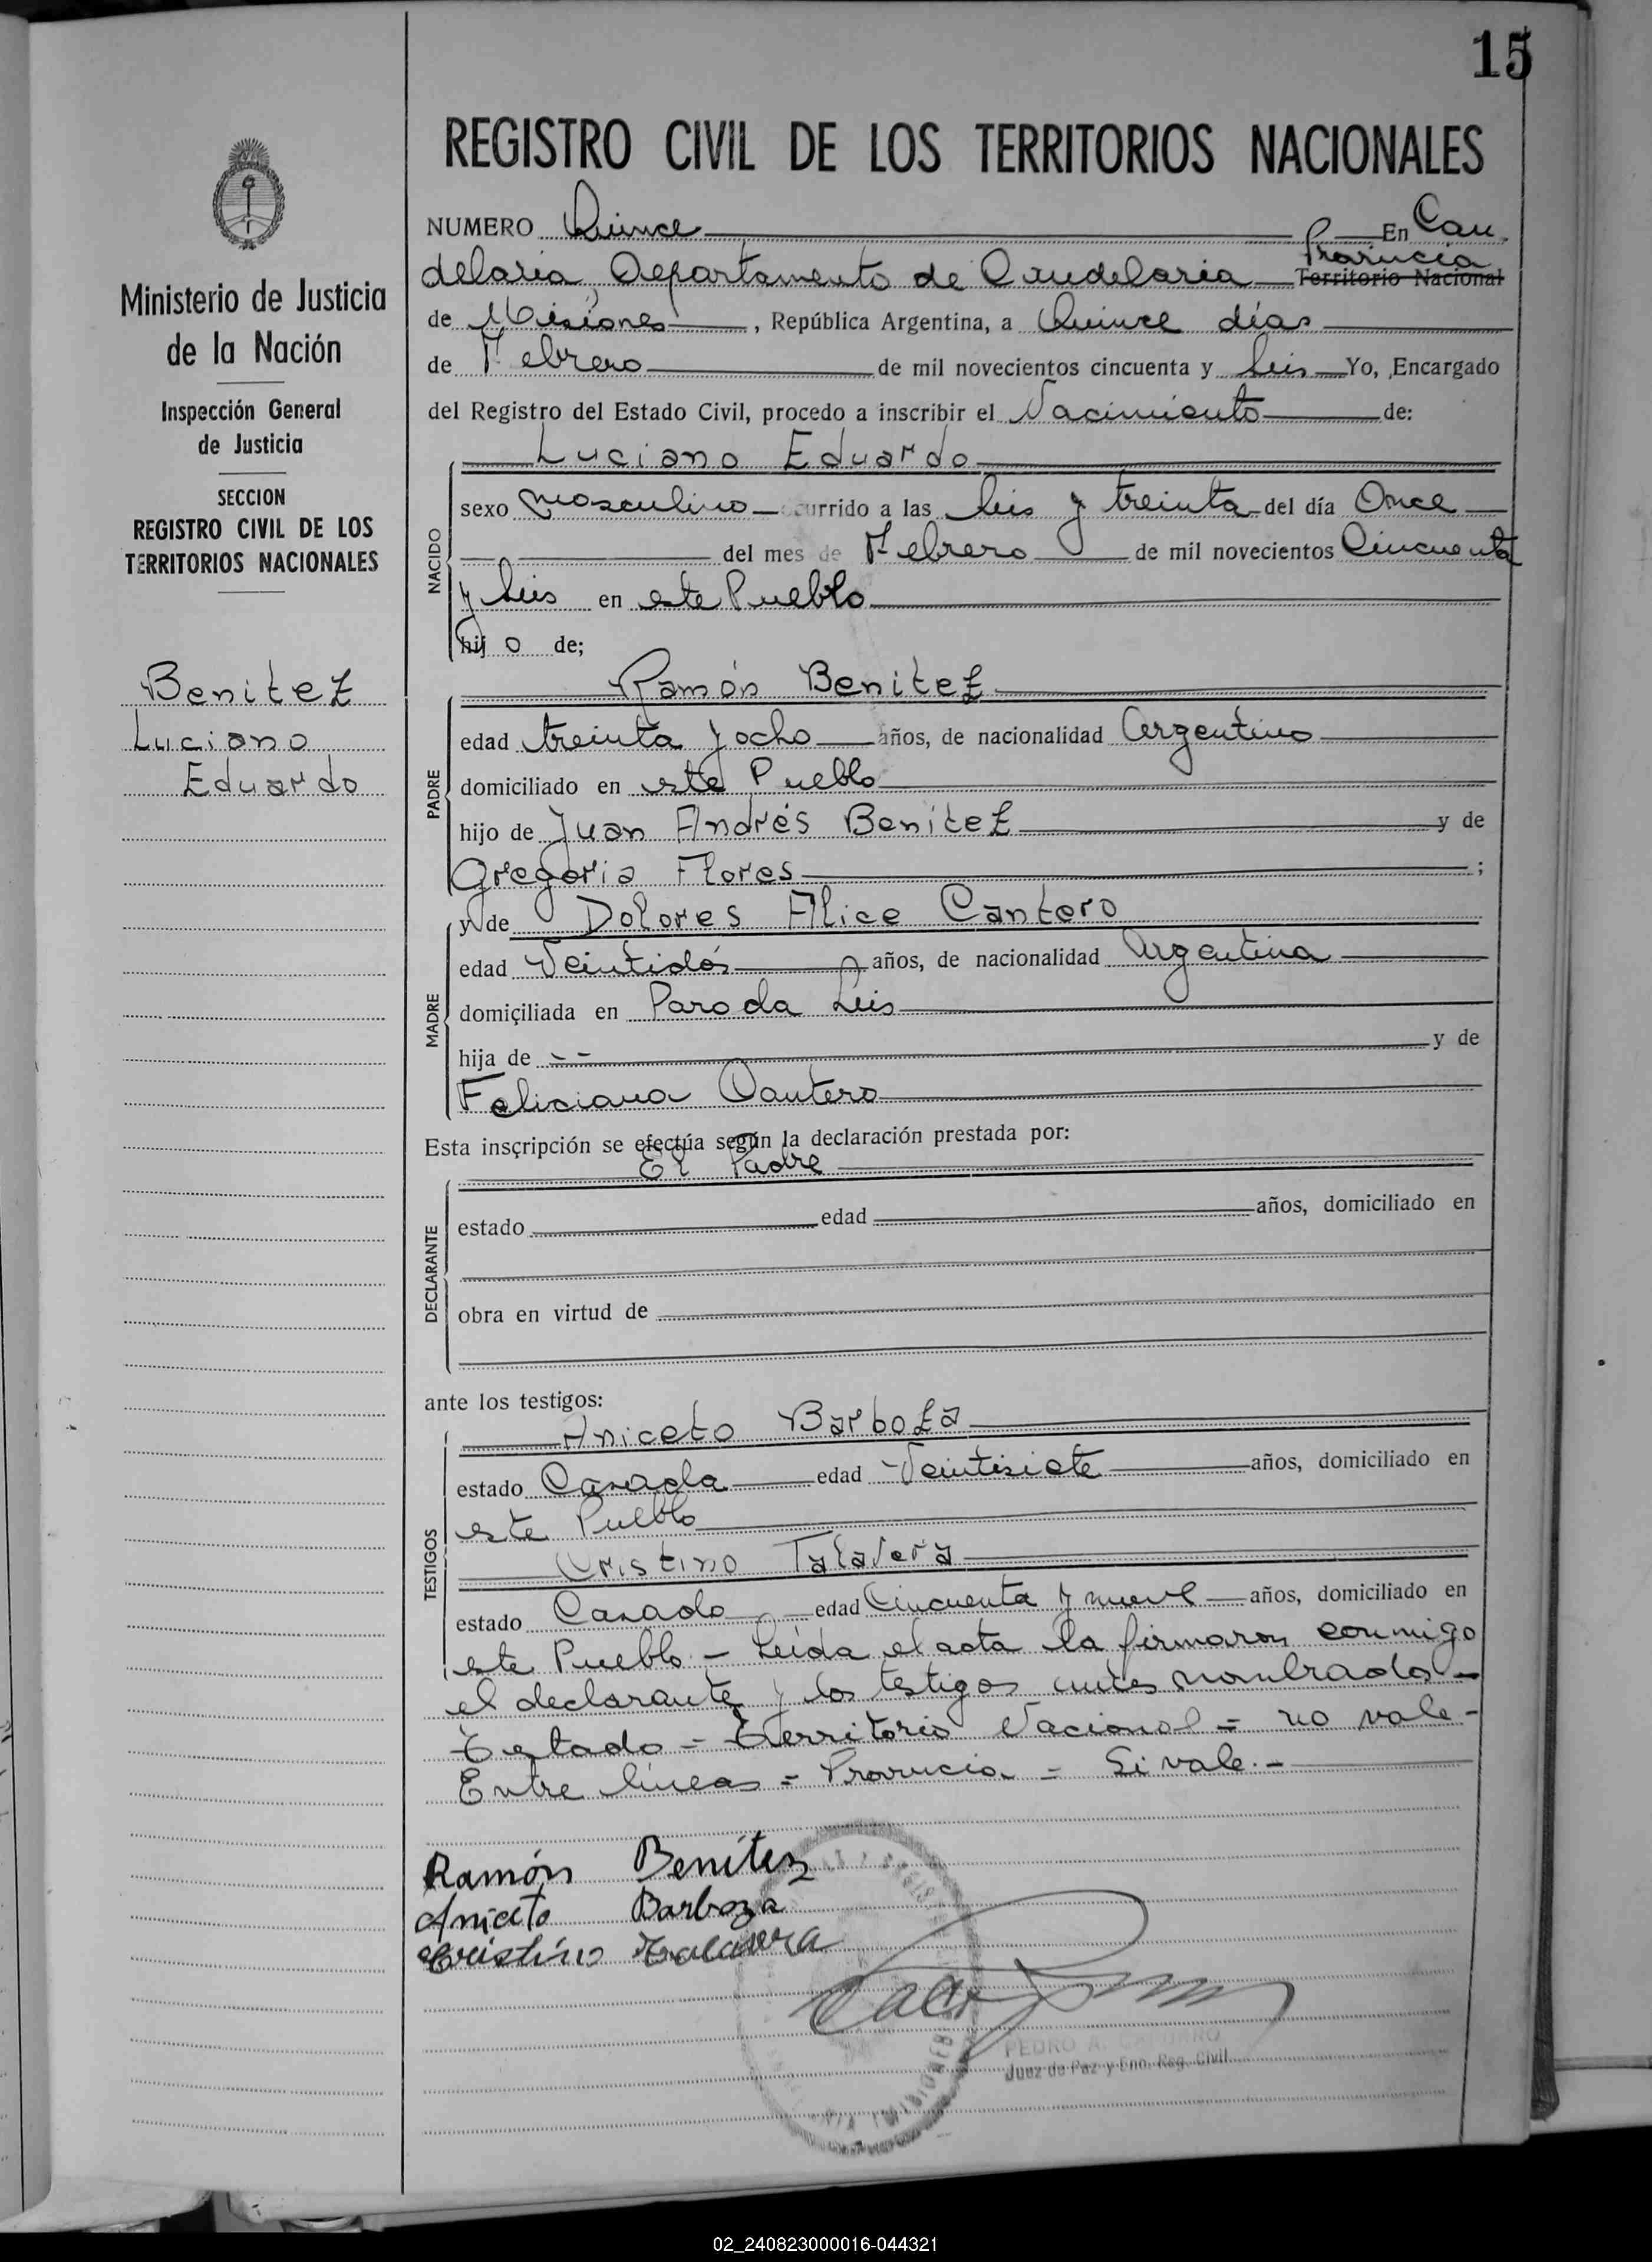 15
REGISTRO CIVIL DE LOS TERRITORIOS NACIONALES
Ministerio de Justicia
de la Nación
Inspección General
de Justicia
SECCION
REGISTRO CIVIL DE LOS
TERRITORIOS NACIONALES
Benitez
Luciano
Eduardo
NUMERO Quince En Can
delaria, Departamento de Candelaria Provincia Territorio Nacional
de Misiones, República Argentina, a Quince días
de Febrero de mil novecientos cincuenta y Seis Yo, Encargado
del Registro del Estado Civil, procedo a inscribir el Nacimiento de:
NACIDO
Luciano Eduardo
sexo masculino ocurrido a las Seis y treinta del día Once
del mes de Febrero de mil novecientos Cincuenta
y Seis en este Pueblo
hijo de;
PADRE
Ramón Benitez
edad treinta y ocho años, de nacionalidad Argentino
domiciliado en este Pueblo
hijo de Juan Andrés Benitez y de
Gregoria Flores ;
MADRE
y de Dolores Alice Cantero
edad Veintidós años, de nacionalidad Argentina
domiciliada en Parada Leis
hija de -- y de
Feliciana Cantero
Esta inscripción se efectúa según la declaración prestada por:
DECLARANTE
El Padre
estado edad años, domiciliado en
obra en virtud de
ante los testigos:
TESTIGOS
Aniceto Barboza
estado Casado edad Veintisiete años, domiciliado en
este Pueblo
Cristino Talavera
estado Casado edad Cincuenta y nueve años, domiciliado en
este Pueblo - Leída el acta la firmaron conmigo
el declarante y los testigos antes nombrados -
Testado = Territorio Nacional = no vale -
Entre líneas = Provincia = Si vale. -
Ramón Benítez
Aniceto Barboza
Cristino Talavera
PEDRO A.
Juez de Paz y Enc. Reg. Civil
02_240823000016-044321